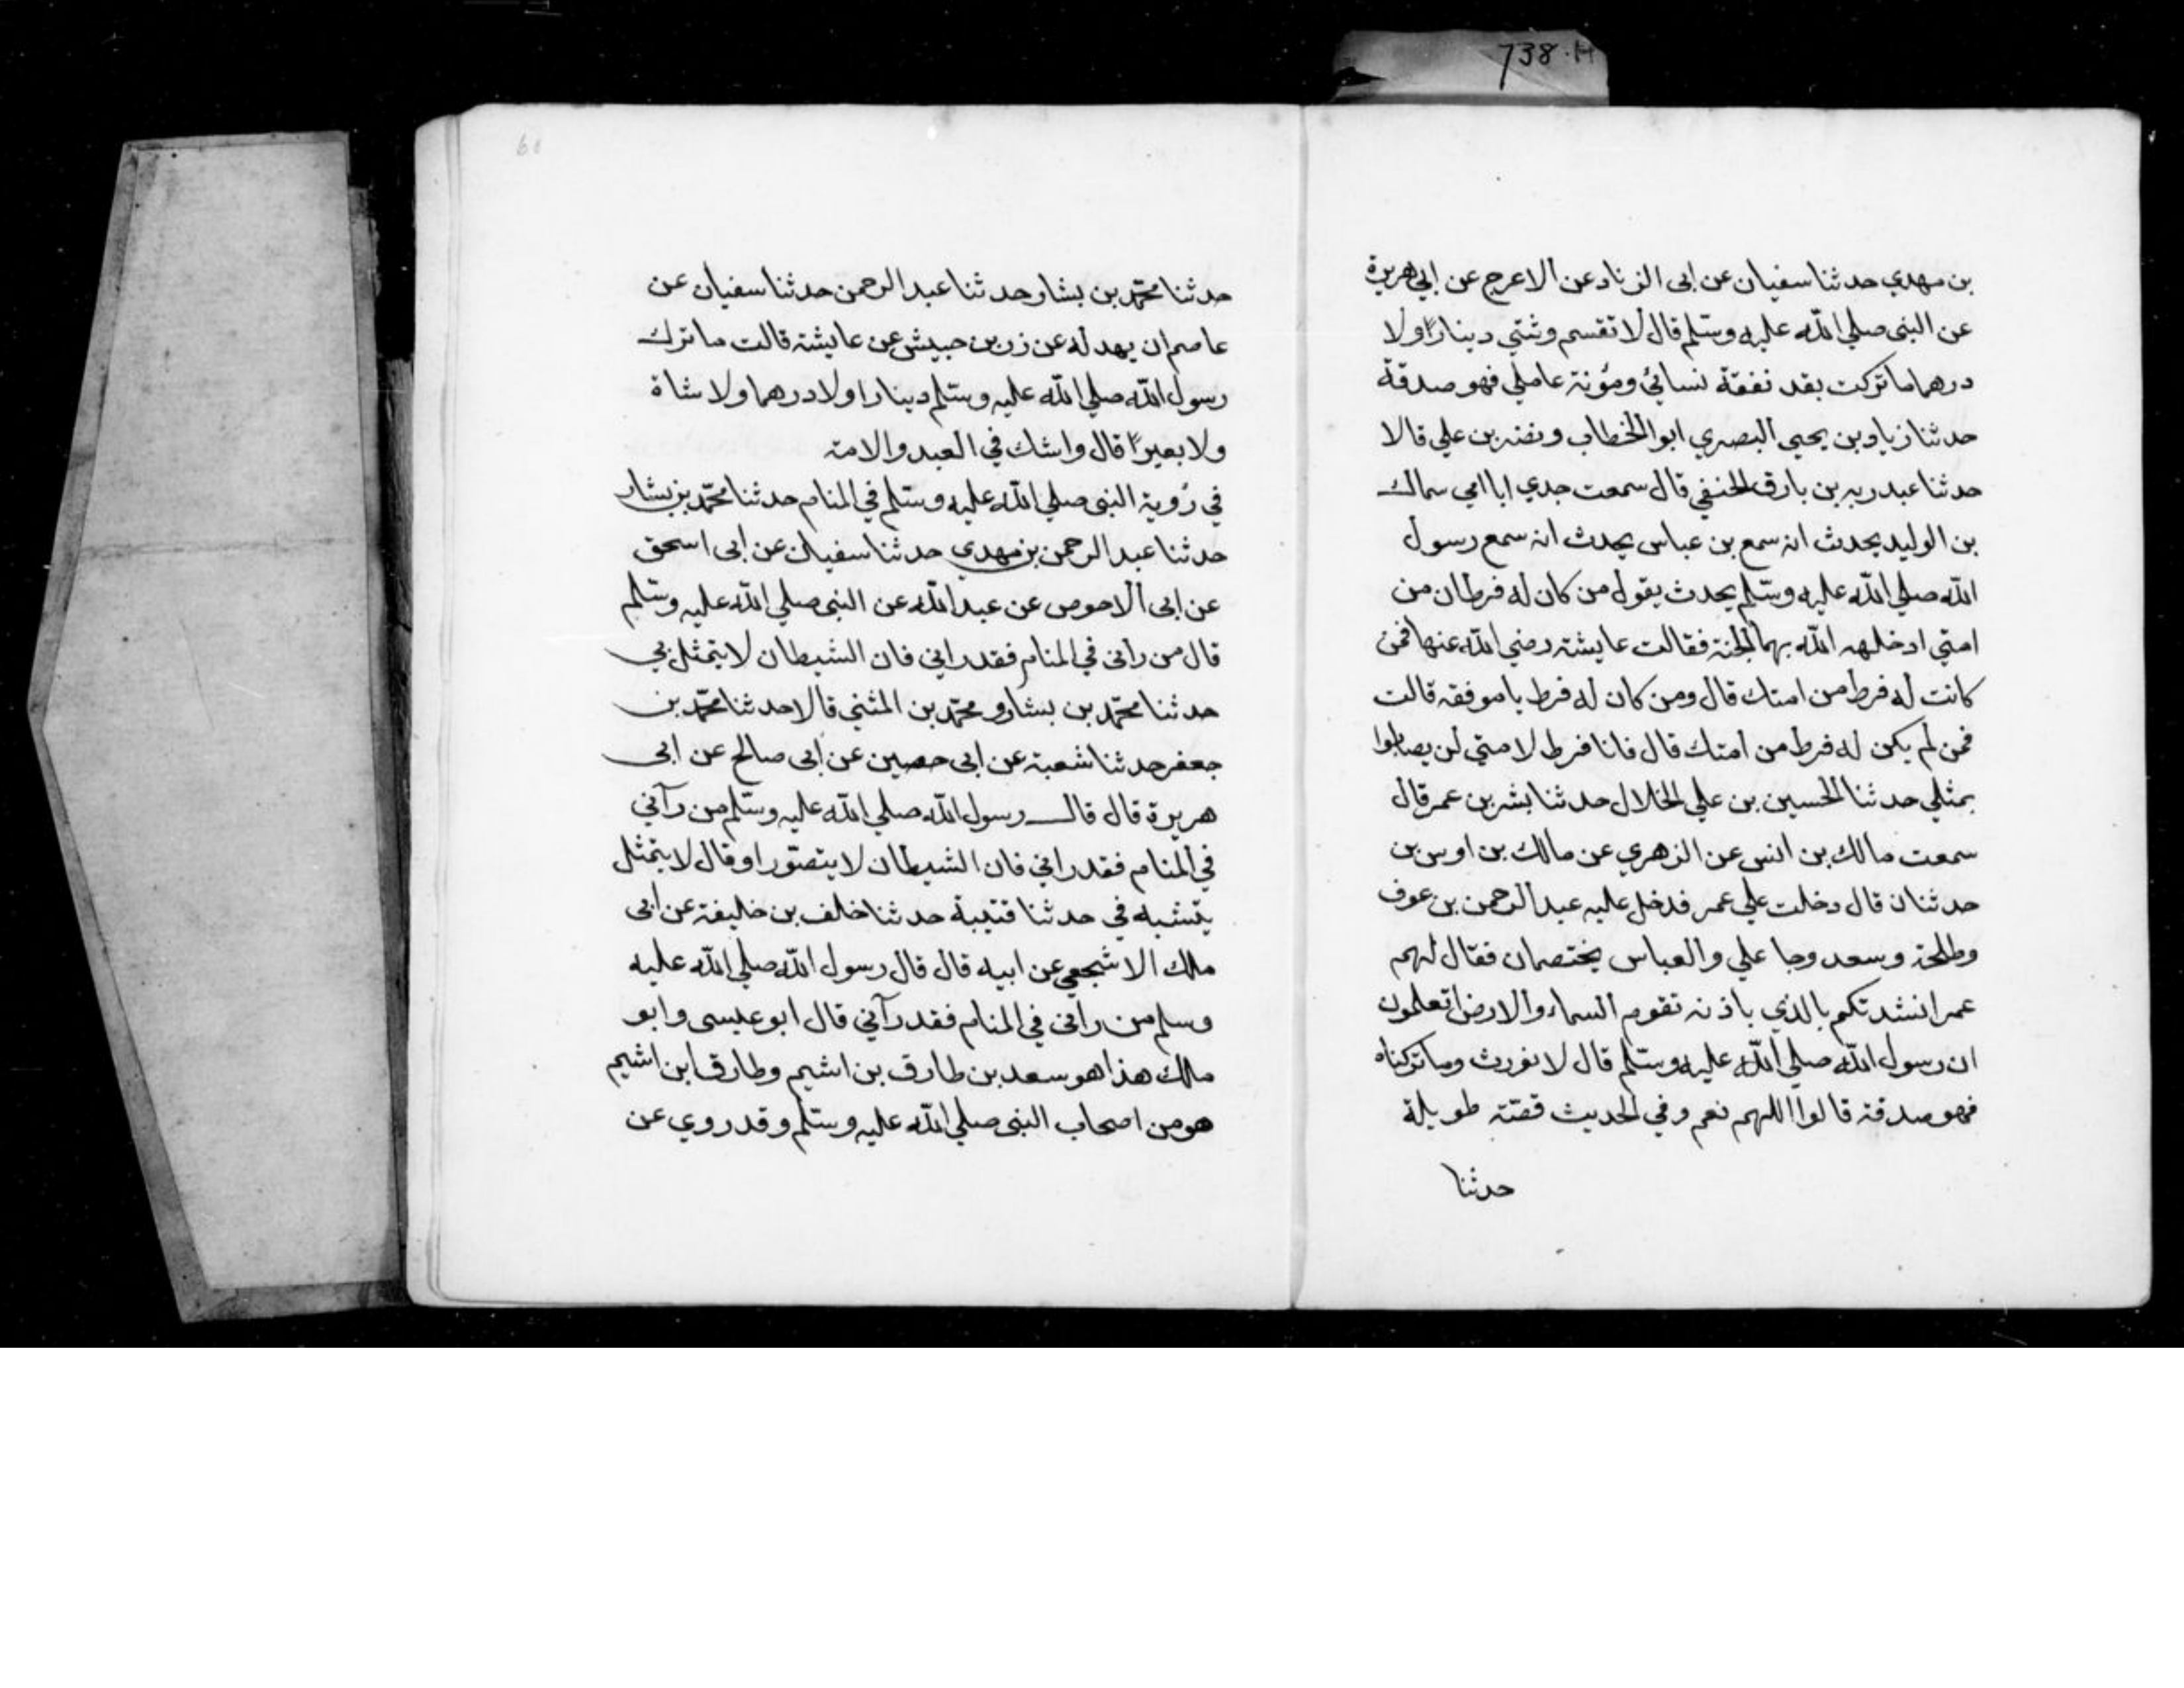 738.H
بن مهدي حدثنا سفيان عن ابى الزناد عن الاعرج عن ابي هريرة
عن النبى صلي الله عليه وسلم قال لا تقسم وثتي دينارًا ولا
درهما ما تركت بقد نفقة نسائئ ومؤنة عاملي فهو صدقة
حدثنا زياد بن يحيى البصري ابو الخطاب ونضر بن علي قالا
حدثنا عبد ربه بن بارق الحنفي قال سمعت جدي ابا امي سماك
بن الوليد يحدث انه سمع بن عباس يحدث انه سمع رسول
الله صلي الله عليه وسلم يحدث يقول من كان له فرطان من
امتي ادخلهه الله بهما الجنة فقالت عايشة رضي الله عنها فمن
كانت له فرط من امتك قال ومن كان له فرط يا موفقه قالت
فمن لم يكن له فرط من امتك قال فانا فرط لامتي لن يصابوا
بمثلي حدثنا الحسين بن علي الخلال حدثنا بشر بن عمر قال
سمعت مالك بن انس عن الزهري عن مالك بن اوس بن
حدثنان قال دخلت علي عمر فدخل عليه عبد الرحمن بن عوف
وطلحة وسعد وجا علي والعباس يختصمان فقال لهم
عمر انشدتكم بالذي باذنه تقوم السماء والارض اتعلمون
ان رسول الله صلي الله عليه وسلم قال لا نورث وما تركناه
فهو صدقة قالوا اللهم نعم وفي الحديث قصّة طويلة
حدثنا
60
حدثنا محمّد بن بشار حدثنا عبد الرحمن حدثنا سفيان عن
عاصم ان بهدله عن زر بن حبيش عن عايشة قالت ما ترك
رسول الله صلي الله عليه وسلم دينارا ولا درهما ولا شاة
ولا بعيرًا قال واشك في العبد والامة
في رؤية النبى صلي الله عليه وسلم في المنام حدثنا محمّد بن بشار
حدثنا عبد الرحمن بن مهدي حدثنا سفيان عن ابى اسحق
عن ابى الاحوص عن عبد الله عن النبى صلي الله عليه وسلم
قال من رانى في المنام فقد راني فان الشيطان لا يتمثل بي
حدثنا محمّد بن بشار و محمّد بن المثني قالا حدثنا محمّد بن
جعفر حدثنا شعبة عن ابى حصين عن ابى صالح عن ابى
هريرة قال قال رسول الله صلي الله عليه وسلم من رآني
في المنام فقد راني فان الشيطان لا يتصوّر او قال لا يتمثل
يتشبه في حدثنا قتيبة حدثنا خلف بن خليفة عن ابى
ملك الاشجعي عن ابيه قال قال رسول الله صلي الله عليه
وسلم من رانى في المنام فقد رآني قال ابو عيسى وابو
ملك هذا هو سعد بن طارق بن اشيم وطارق ابن اشيم
هو من اصحاب النبى صلي الله عليه وسلم وقد روي عن